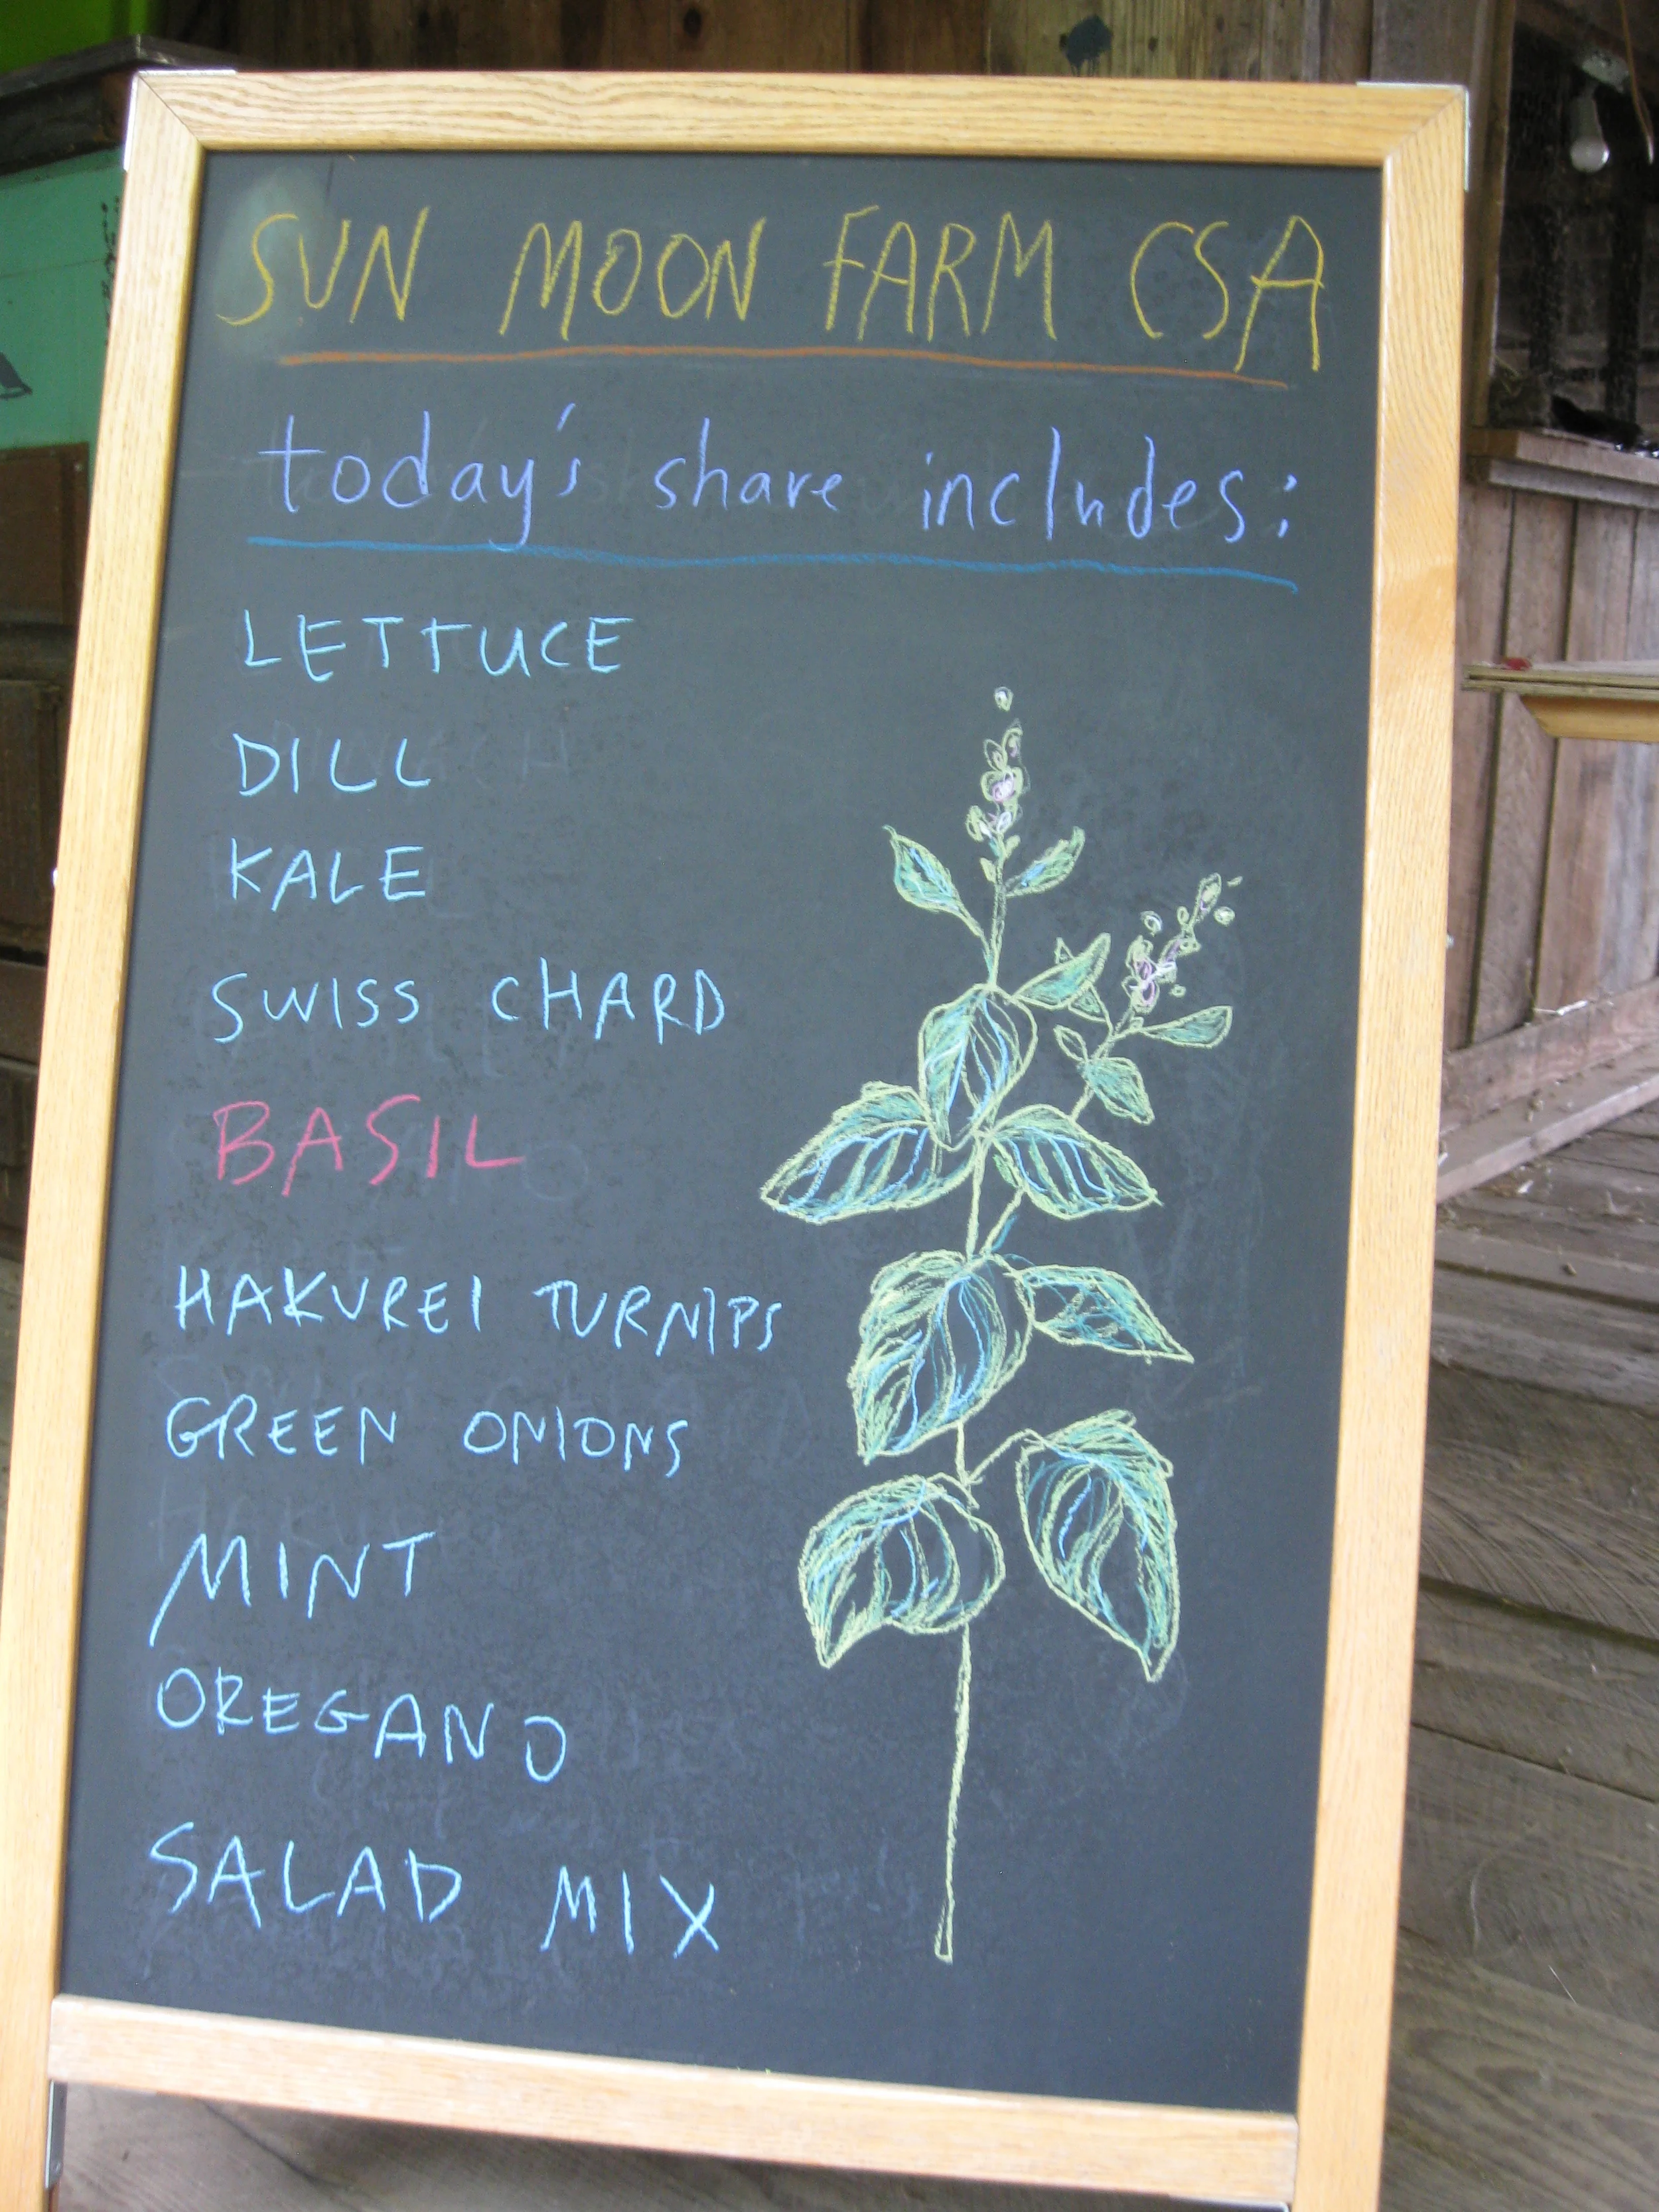 SUN MOON FARM CSA
today's share includes:
LETTUCE
DILL
KALE
SWISS CHARD
BASIL
HAKUREI TURNIPS
GREEN ONIONS
MINT
OREGANO
SALAD MIX